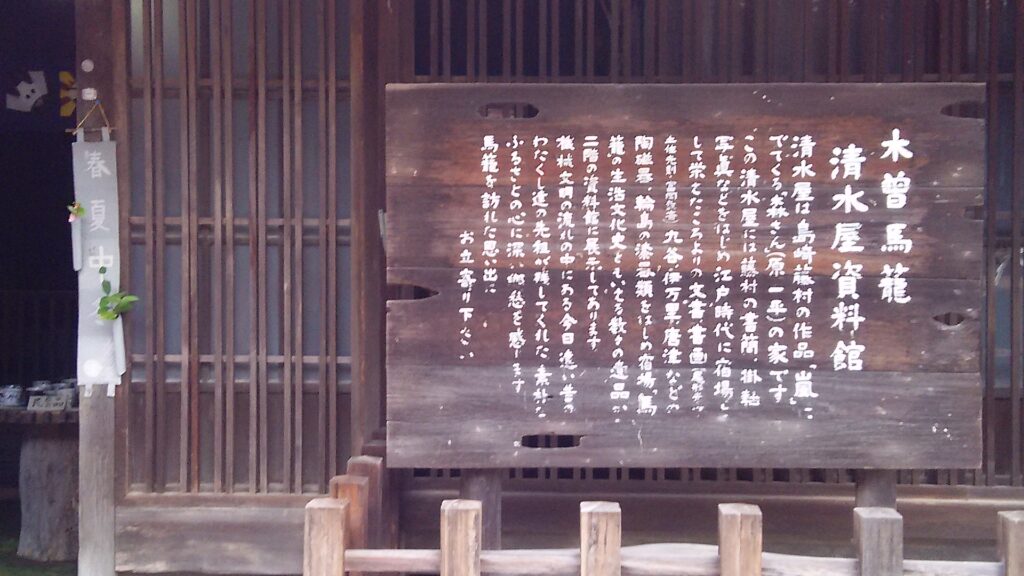 木曽馬籠
清水屋資料館
清水屋は島崎藤村の作品「嵐」に
でてくる森さん(原 一平)の家です
この清水屋には藤村の書簡、掛軸
写真などをはじめ江戸時代に宿場と
して栄たころよりの文書 書画
九谷 伊万里 唐津 などの
陶磁器、輪島の漆器類をはじめ宿場、馬
籠の生活文化史ともいえる数々の遺品が
二階の資料館に展示してあります
機械文明の流れの中にある今日遠い昔の
わたくし達の先祖が残してくれた、素朴な
ふるさとの心に深い郷愁を感じます
馬籠を訪れた思い出に
お立寄り下さい
春夏中冬